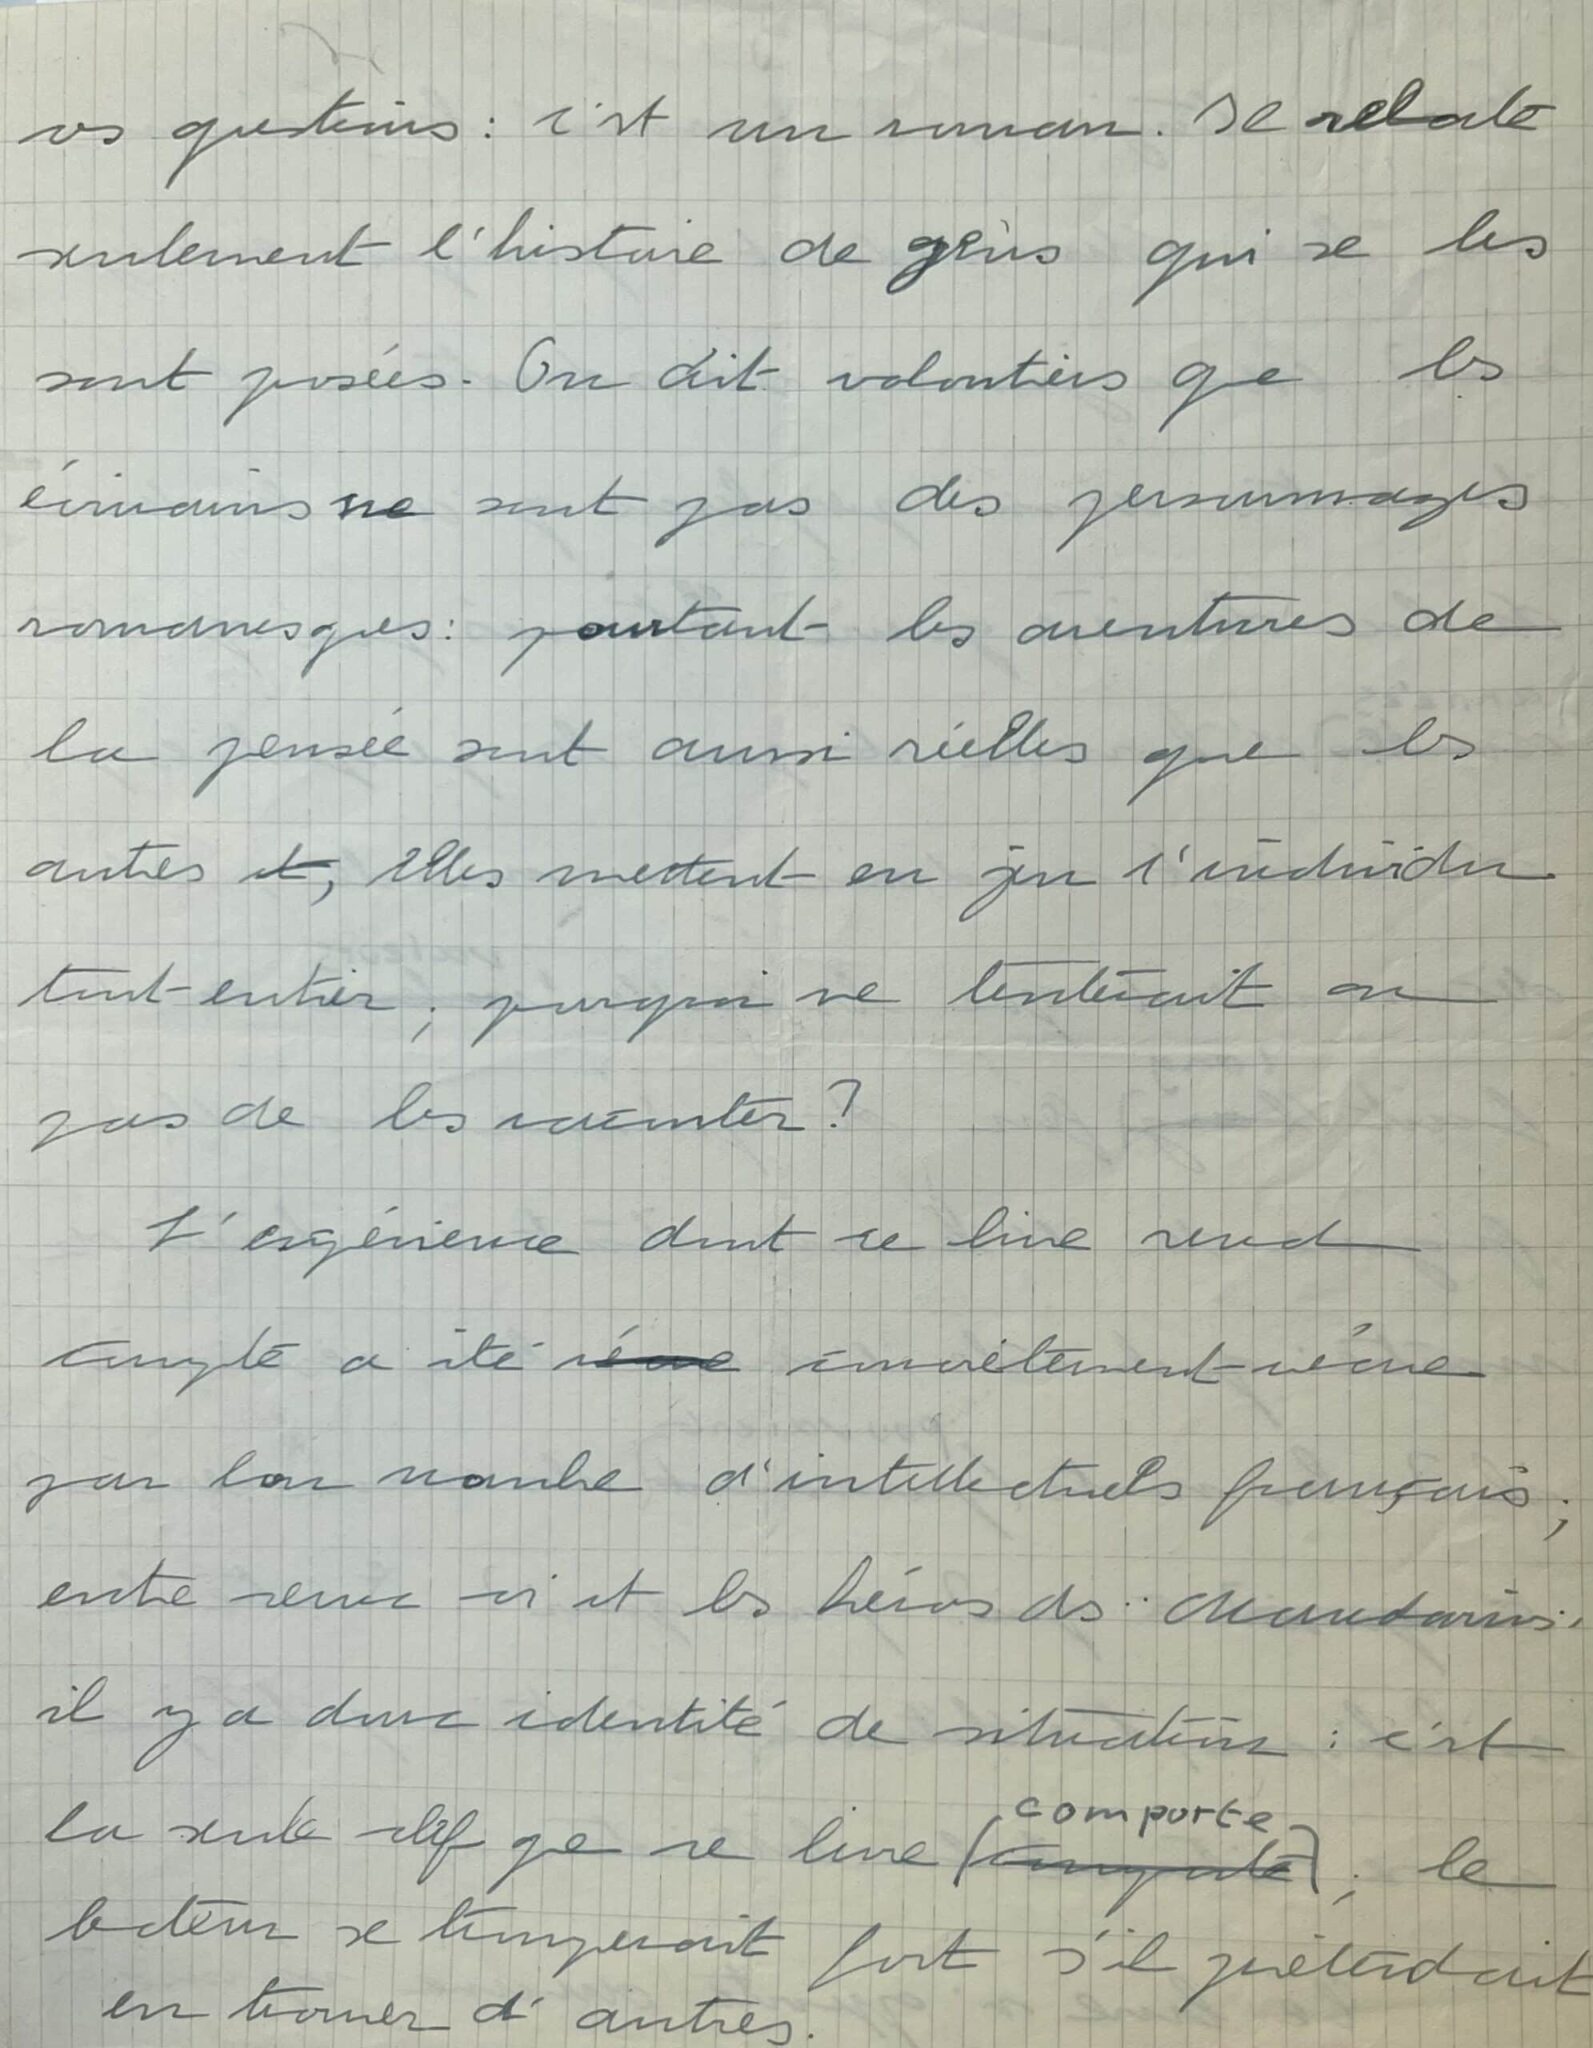 vos questions : c'est un roman. Je relate
seulement l'histoire de gens qui se les
sont posées. On dit volontiers que les
écrivains ne sont pas des personnages
romanesques : pourtant les aventures de
la pensée sont aussi réelles que les
autres et, elles mettent en jeu l'individu
tout entier ; pourquoi ne tenterait on
pas de les raconter ?
L'expérience dont ce livre rend
compte a été vécue concrètement vécue
par bon nombre d'intellectuels français ;
entre ceux ci et les héros des "Mandarins"
il y a donc identité de situation : c'est
comporte
la seule clef que ce livre (comporte) ; le
lecteur se tromperait fort s'il prétendait
en trouver d'autres.